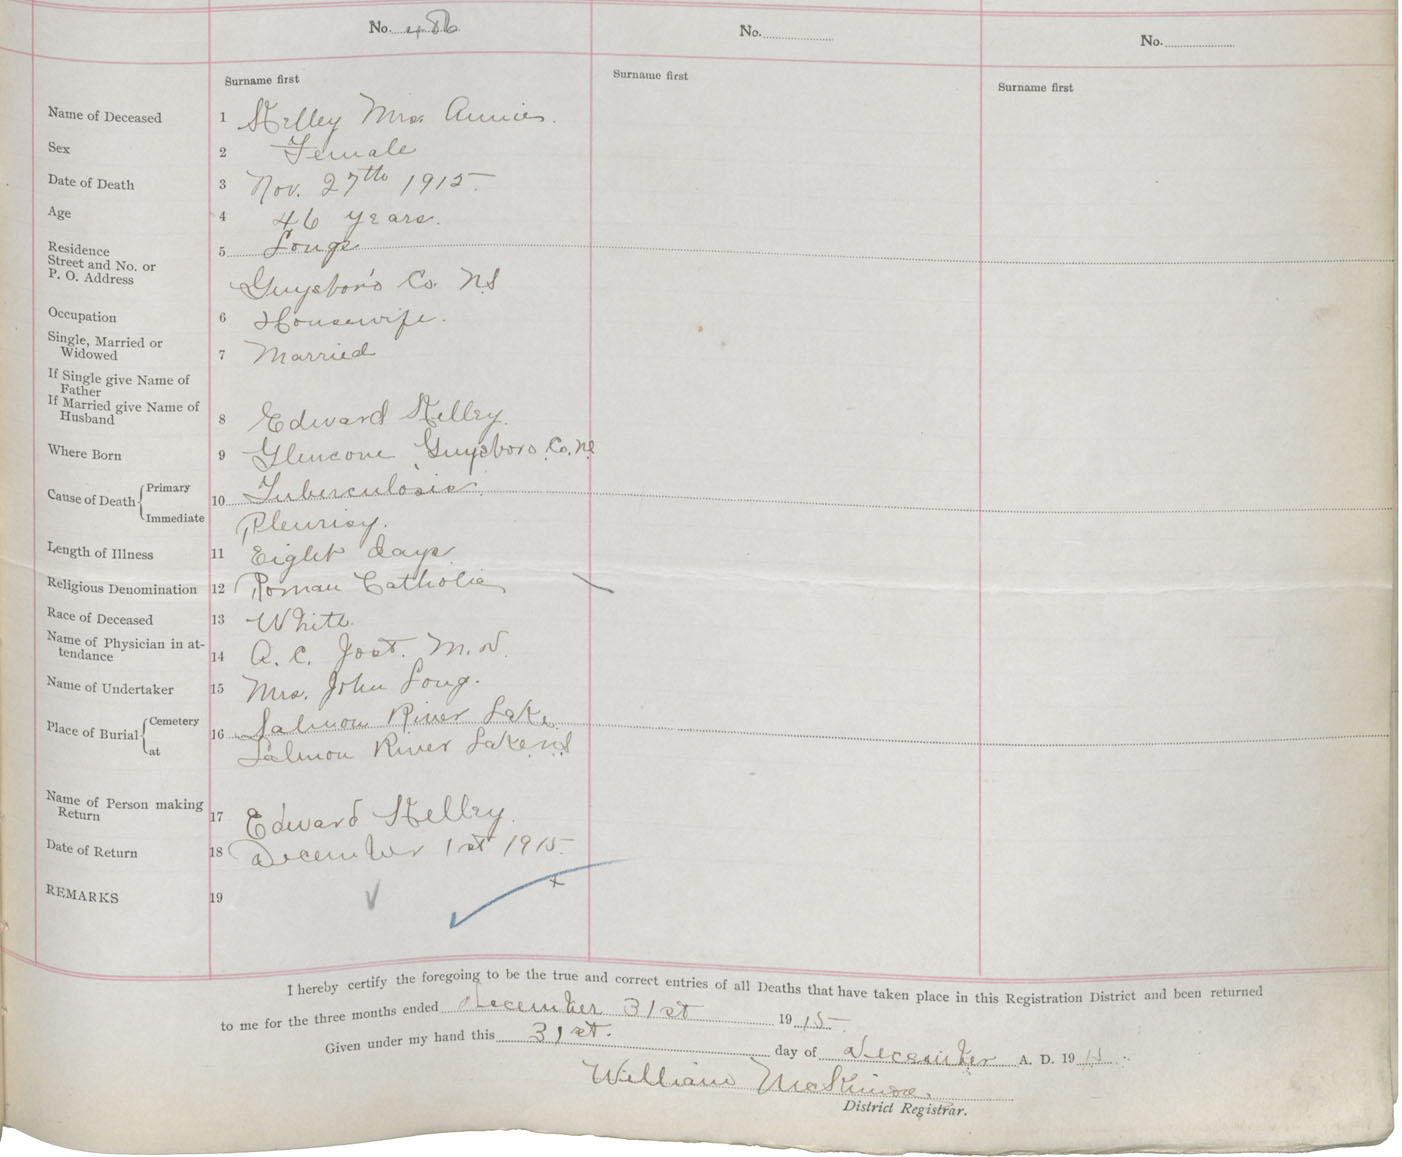 No. 486
No.
No.
Surname first
Surname first
Surname first
Name of Deceased 1 Kelley Mrs. Annie.
Sex 2 Female
Date of Death 3 Nov. 27th 1915
Age 4 46 years.
Residence 5
Street and No. or
P. O. Address Guysboro Co. NS
Occupation 6 Housewife.
Single, Married or
Widowed 7 Married
If Single give Name of
Father
If Married give Name of
Husband 8 Edward Kelley.
Where Born 9 Glencove Guysboro Co. NS
Cause of Death Primary 10 Tuberculosis.
Immediate Pleurisy.
Length of Illness 11 Eight days
Religious Denomination 12 Roman Catholic
Race of Deceased 13 White.
Name of Physician in at-
tendance 14 A. C. Jost. M.D.
Name of Undertaker 15 Mrs. John Long.
Place of Burial Cemetery 16 Salmon River Lake
at Salmon River Lake NS
Name of Person making
Return 17 Edward Kelley.
Date of Return 18 December 1st 1915
REMARKS 19
I hereby certify the foregoing to be the true and correct entries of all Deaths that have taken place in this Registration District and been returned
to me for the three months ended December 31st 1915
Given under my hand this 31st. day of December A. D. 1915
William
District Registrar.